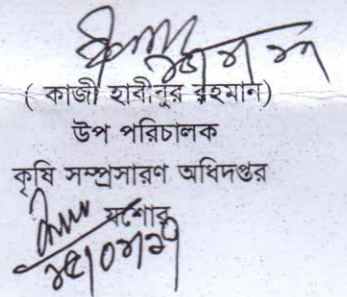 ( কাজী হাবীবুর রহমান)
উপ পরিচালক
কৃষি সম্প্রসারণ অধিদপ্তর
যশোর